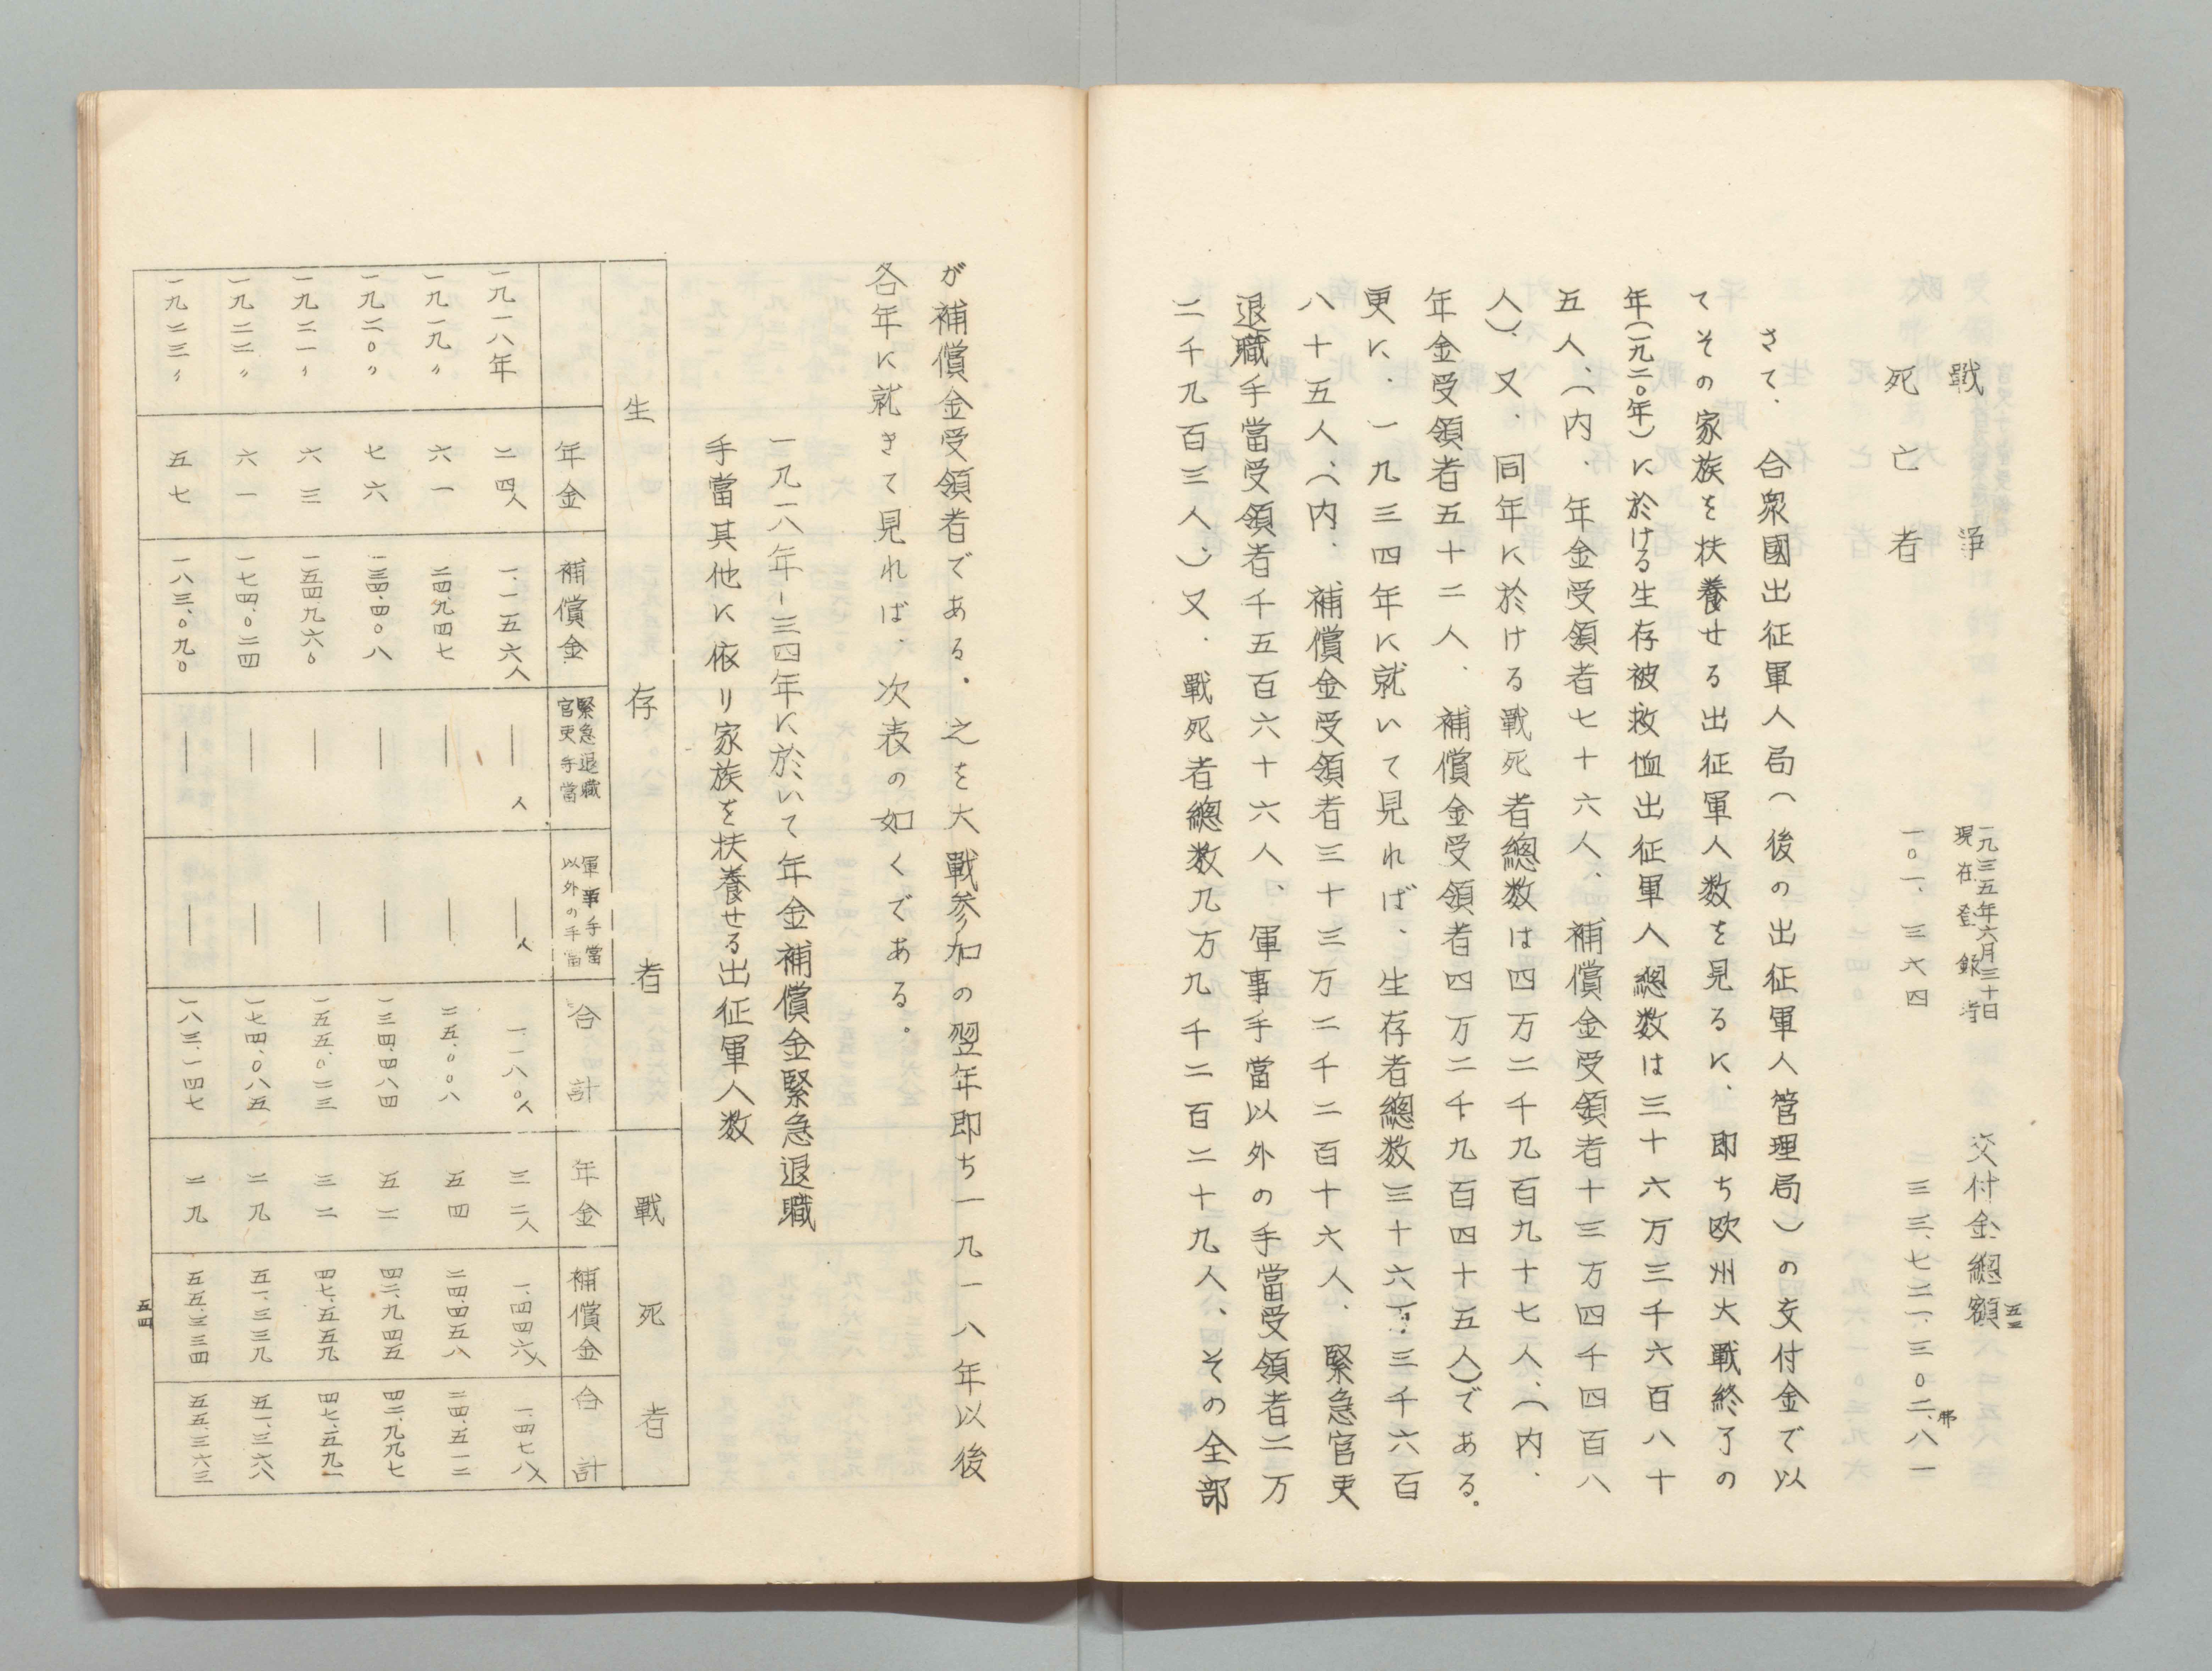 戰争　一九三五年六月三十日　交付金總額
現在登録者
死亡者　一〇一、三六四　二三三、七二一、三〇二、八一
弗
五三
さて、合衆國出征軍人局（後の出征軍人管理局）の交付金で以
てその家族を扶養せる出征軍人数を見るに、即ち欧州大戰終了の
年（一九二〇年）に於ける生存被救恤出征軍人總数は三十六万三千六百八十
五人、（内、年金受領者七十六人、補償金受領者十三万四千四百八
人）、又、同年に於ける戰死者總数は四万二千九百九十七人、（内、
年金受領者五十二人、補償金受領者四万二千九百四十五人）である。
更に、一九三四年に就いて見れば、生存者總数三十六万三千六百
八十五人、（内、補償金受領者三十三万二千二百十六人、緊急官吏
退職手當受領者千五百六十六人、軍事手當以外の手當受領者二万
二千九百三人、）又、戰死者總数九万九千二百二十九人、その全部
が補償金受領者である。之を大戰参加の翌年即ち一九一八年以後
各年に就きて見れば、次表の如くである。
一九一八年ー三四年に於いて年金補償金緊急退職
手當其他に依り家族を扶養せる出征軍人数
生存者　戰死者
年金　補償金　緊急退職官吏手當　軍事手當以外の手當　合計　年金　補償金　合計
一九一八年　二四人　一、一五六人　―人　―人　一、一八〇人　三二人　一、四四六人　一、四七八人
一九一九〃　六一　二四、九四七　―　―　二五、〇〇八　五四　二四、四五八　二四、五一二
一九二〇〃　七六　一三四、四〇八　―　―　一三四、四八四　五二　四二、九四五　四二、九九七
一九二一〃　六三　一五四、九六〇　―　―　一五五、〇二三　三二　四七、五五九　四七、五九一
一九二二〃　六一　一七四、〇二四　―　―　一七四、〇八五　二九　五一、三三九　五一、三六八
一九二三〃　五七　一八三、〇九〇　―　―　一八三、一四七　二九　五五、三三四　五五、三六三
五四